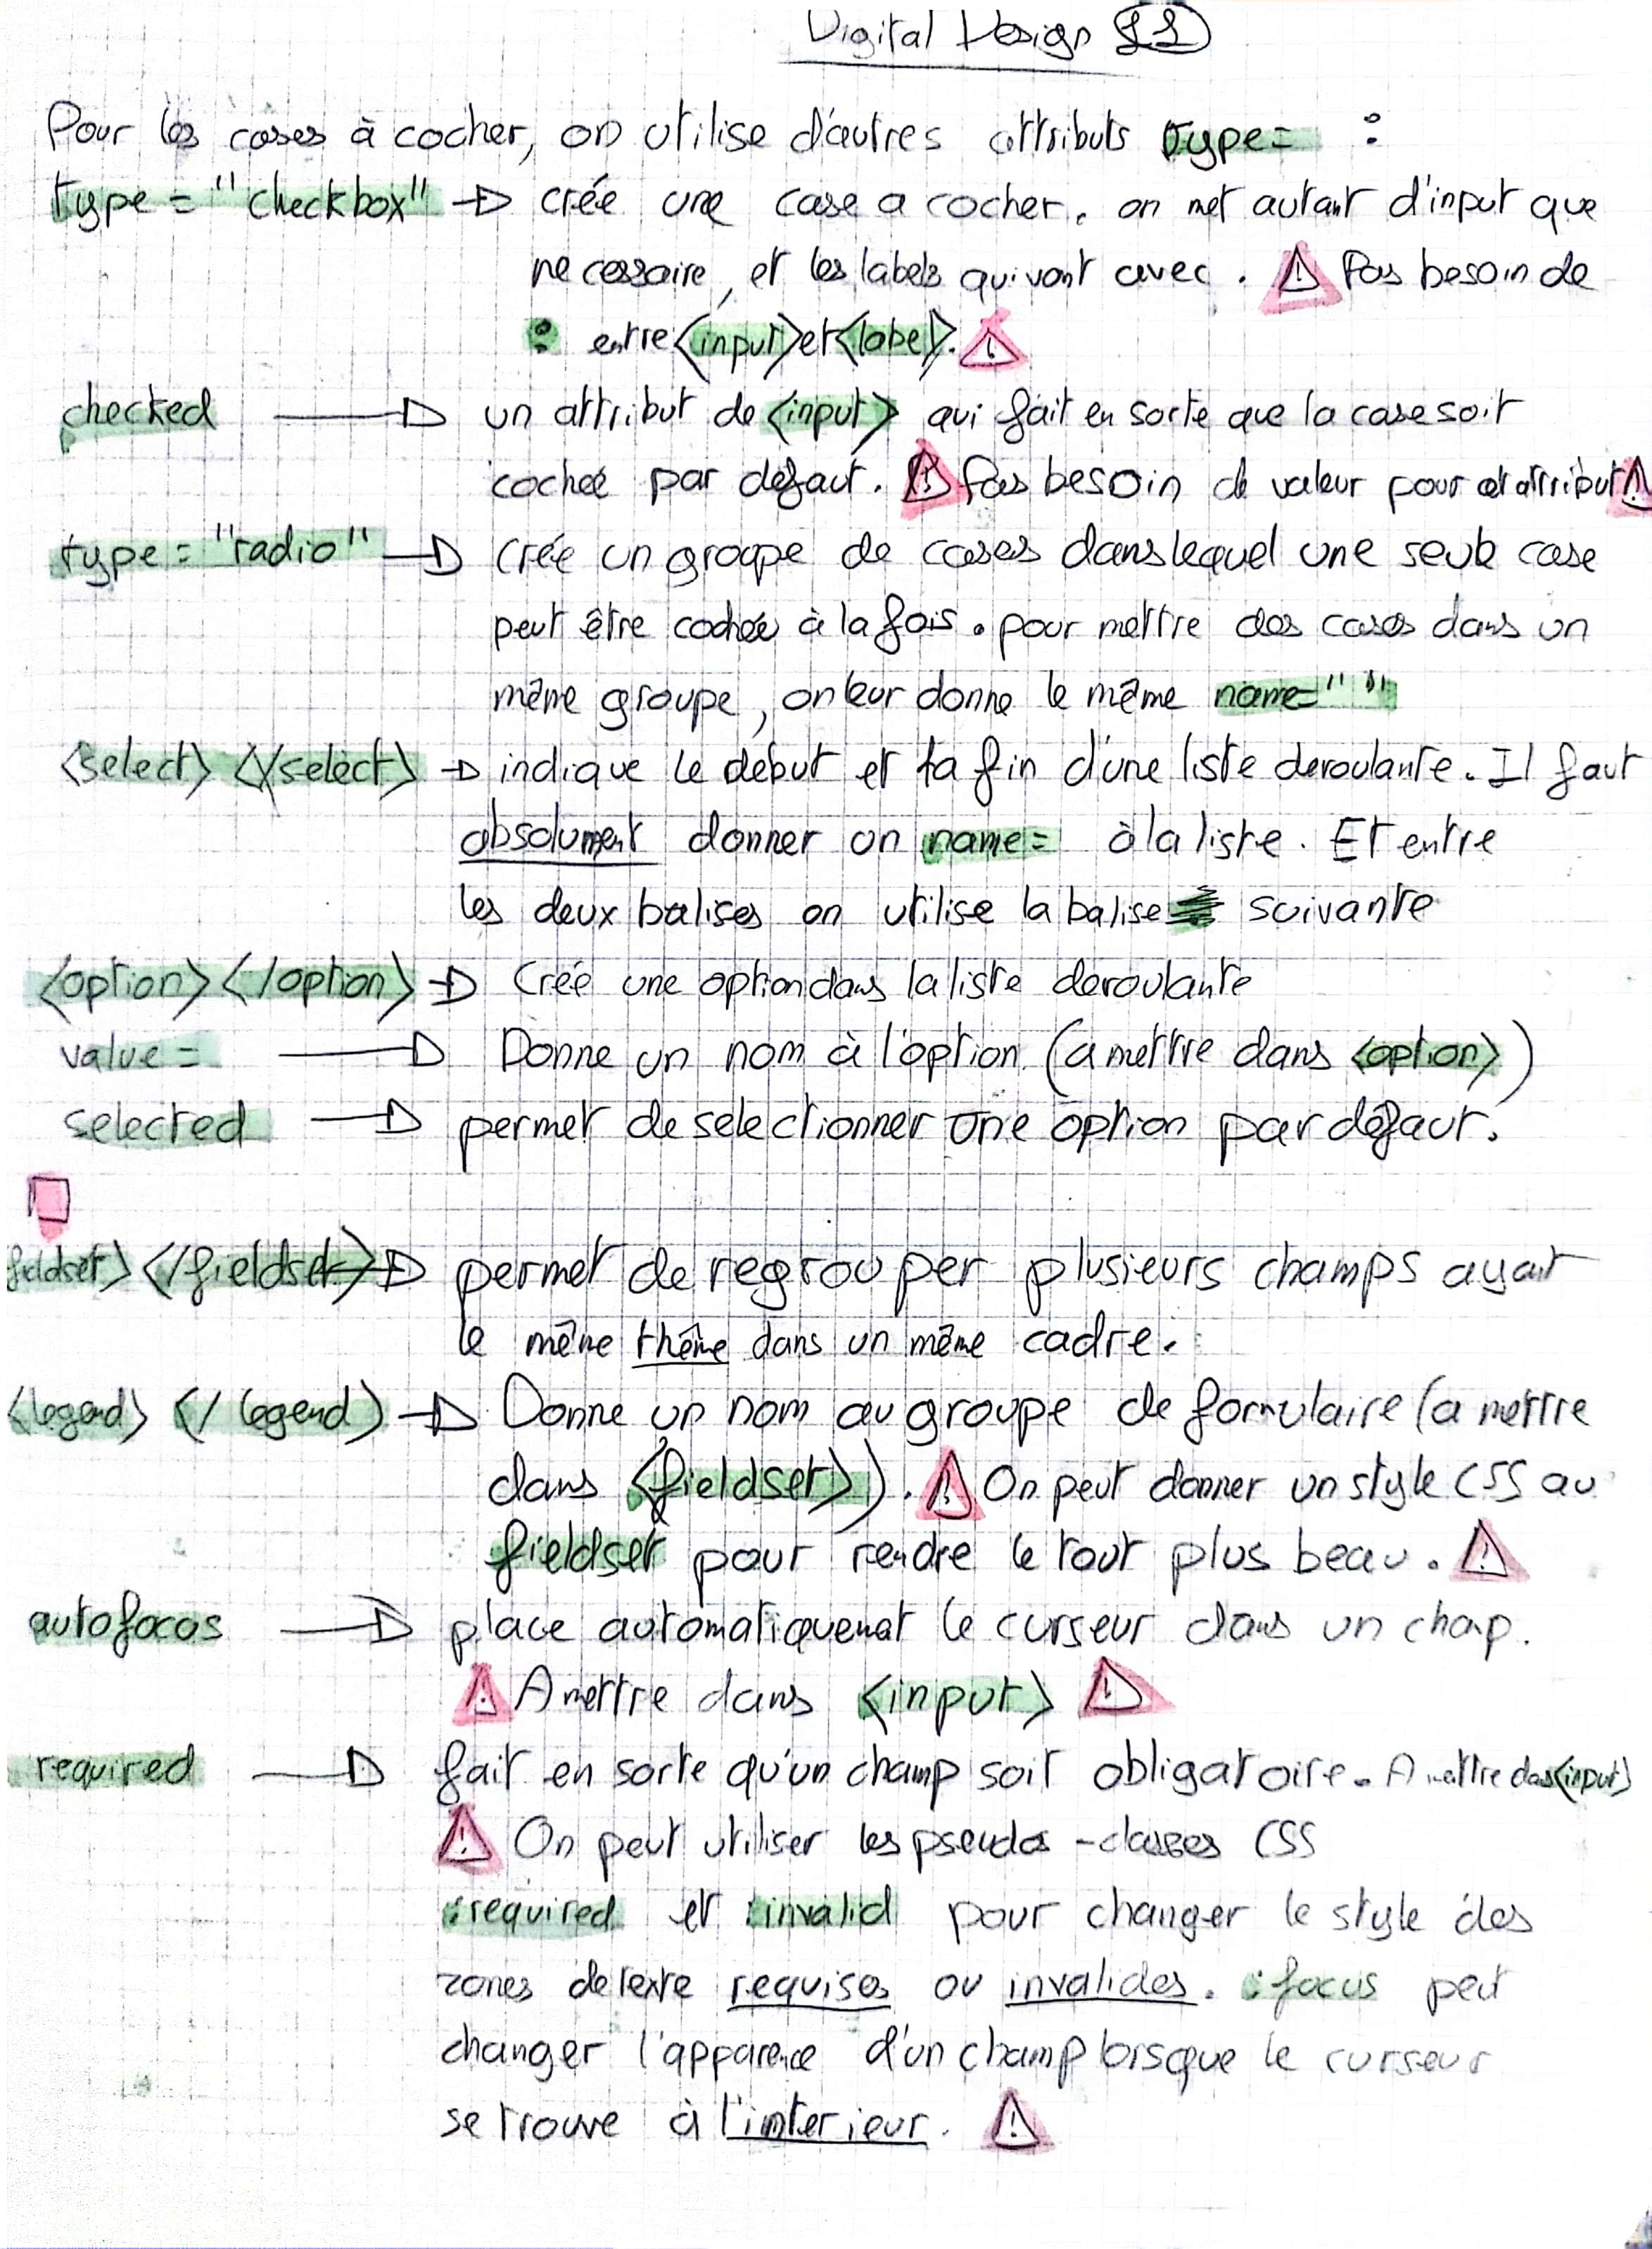 Digital Design 11
Pour les cases à cocher, on utilise d'autres attributs type= :
type = "checkbox" → crée une case a cocher. on met autant d'input que
necessaire, et les labels qui vont avec. ⚠ Pas besoin de
: entre <input> et <label>. ⚠
checked → un attribut de <input> qui fait en sorte que la case soit
cochée par défaut. ⚠ Pas besoin de valeur pour cet attribut ⚠
type = "radio" → crée un groupe de cases dans lequel une seule case
peut être cochée à la fois. pour mettre des cases dans un
même groupe, on leur donne le même name=" "
<select> </select> → indique le debut et la fin d'une liste deroulante. Il faut
absolument donner un name= à la liste. Et entre
les deux balises on utilise la balise suivante
<option> </option> → Crée une option dans la liste deroulante
value = → Donne un nom à l'option (a mettre dans <option>)
selected → permet de selectionner une option par défaut.
fieldset> </fieldset> → permet de regrouper plusieurs champs ayant
le même thème dans un même cadre.
<legend> </legend> → Donne un nom au groupe de formulaire (a mettre
dans <fieldset>). ⚠ On peut donner un style CSS au
fieldset pour rendre le tout plus beau. ⚠
autofocus → place automatiquemnet le curseur dans un chap.
⚠ A mettre dans <input> ⚠
required → fait en sorte qu'un champ soit obligatoire. A mettre das <input>
⚠ On peut utiliser les pseudo-classes CSS
:required et :invalid pour changer le style des
zones de texte requises ou invalides. :focus peut
changer l'apparence d'un champ lorsque le curseur
se trouve à l'interieur. ⚠